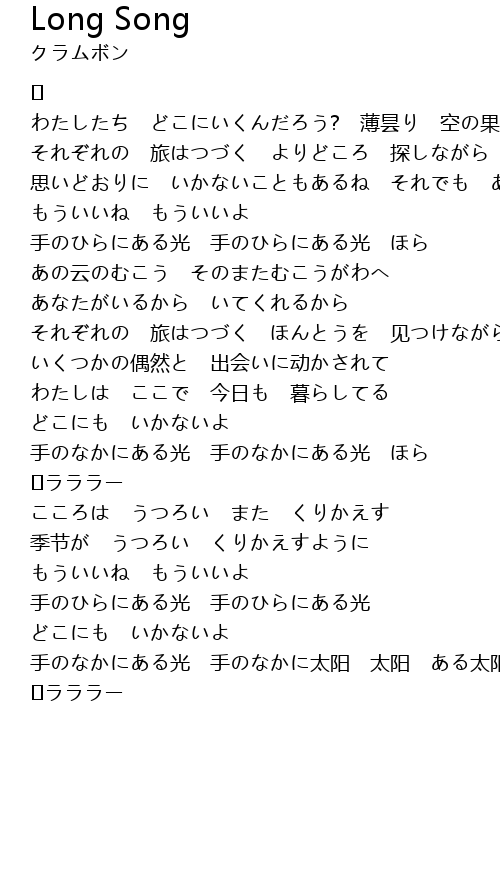 Long Song
クラムボン
わたしたち　どこにいくんだろう?　薄昙り　空の果
それぞれの　旅はつづく　よりどころ　探しながら
思いどおりに　いかないこともあるね　それでも
もういいね　もういいよ
手のひらにある光　手のひらにある光　ほら
あの云のむこう　そのまたむこうがわへ
あなたがいるから　いてくれるから
それぞれの　旅はつづく　ほんとうを　见つけながら
いくつかの偶然と　出会いに动かされて
わたしは　ここで　今日も　暮らしてる
どこにも　いかないよ
手のなかにある光　手のなかにある光　ほら
ラララー
こころは　うつろい　また　くりかえす
季节が　うつろい　くりかえすように
もういいね　もういいよ
手のひらにある光　手のひらにある光
どこにも　いかないよ
手のなかにある光　手のなかに太阳　太阳　ある太阳
ラララー